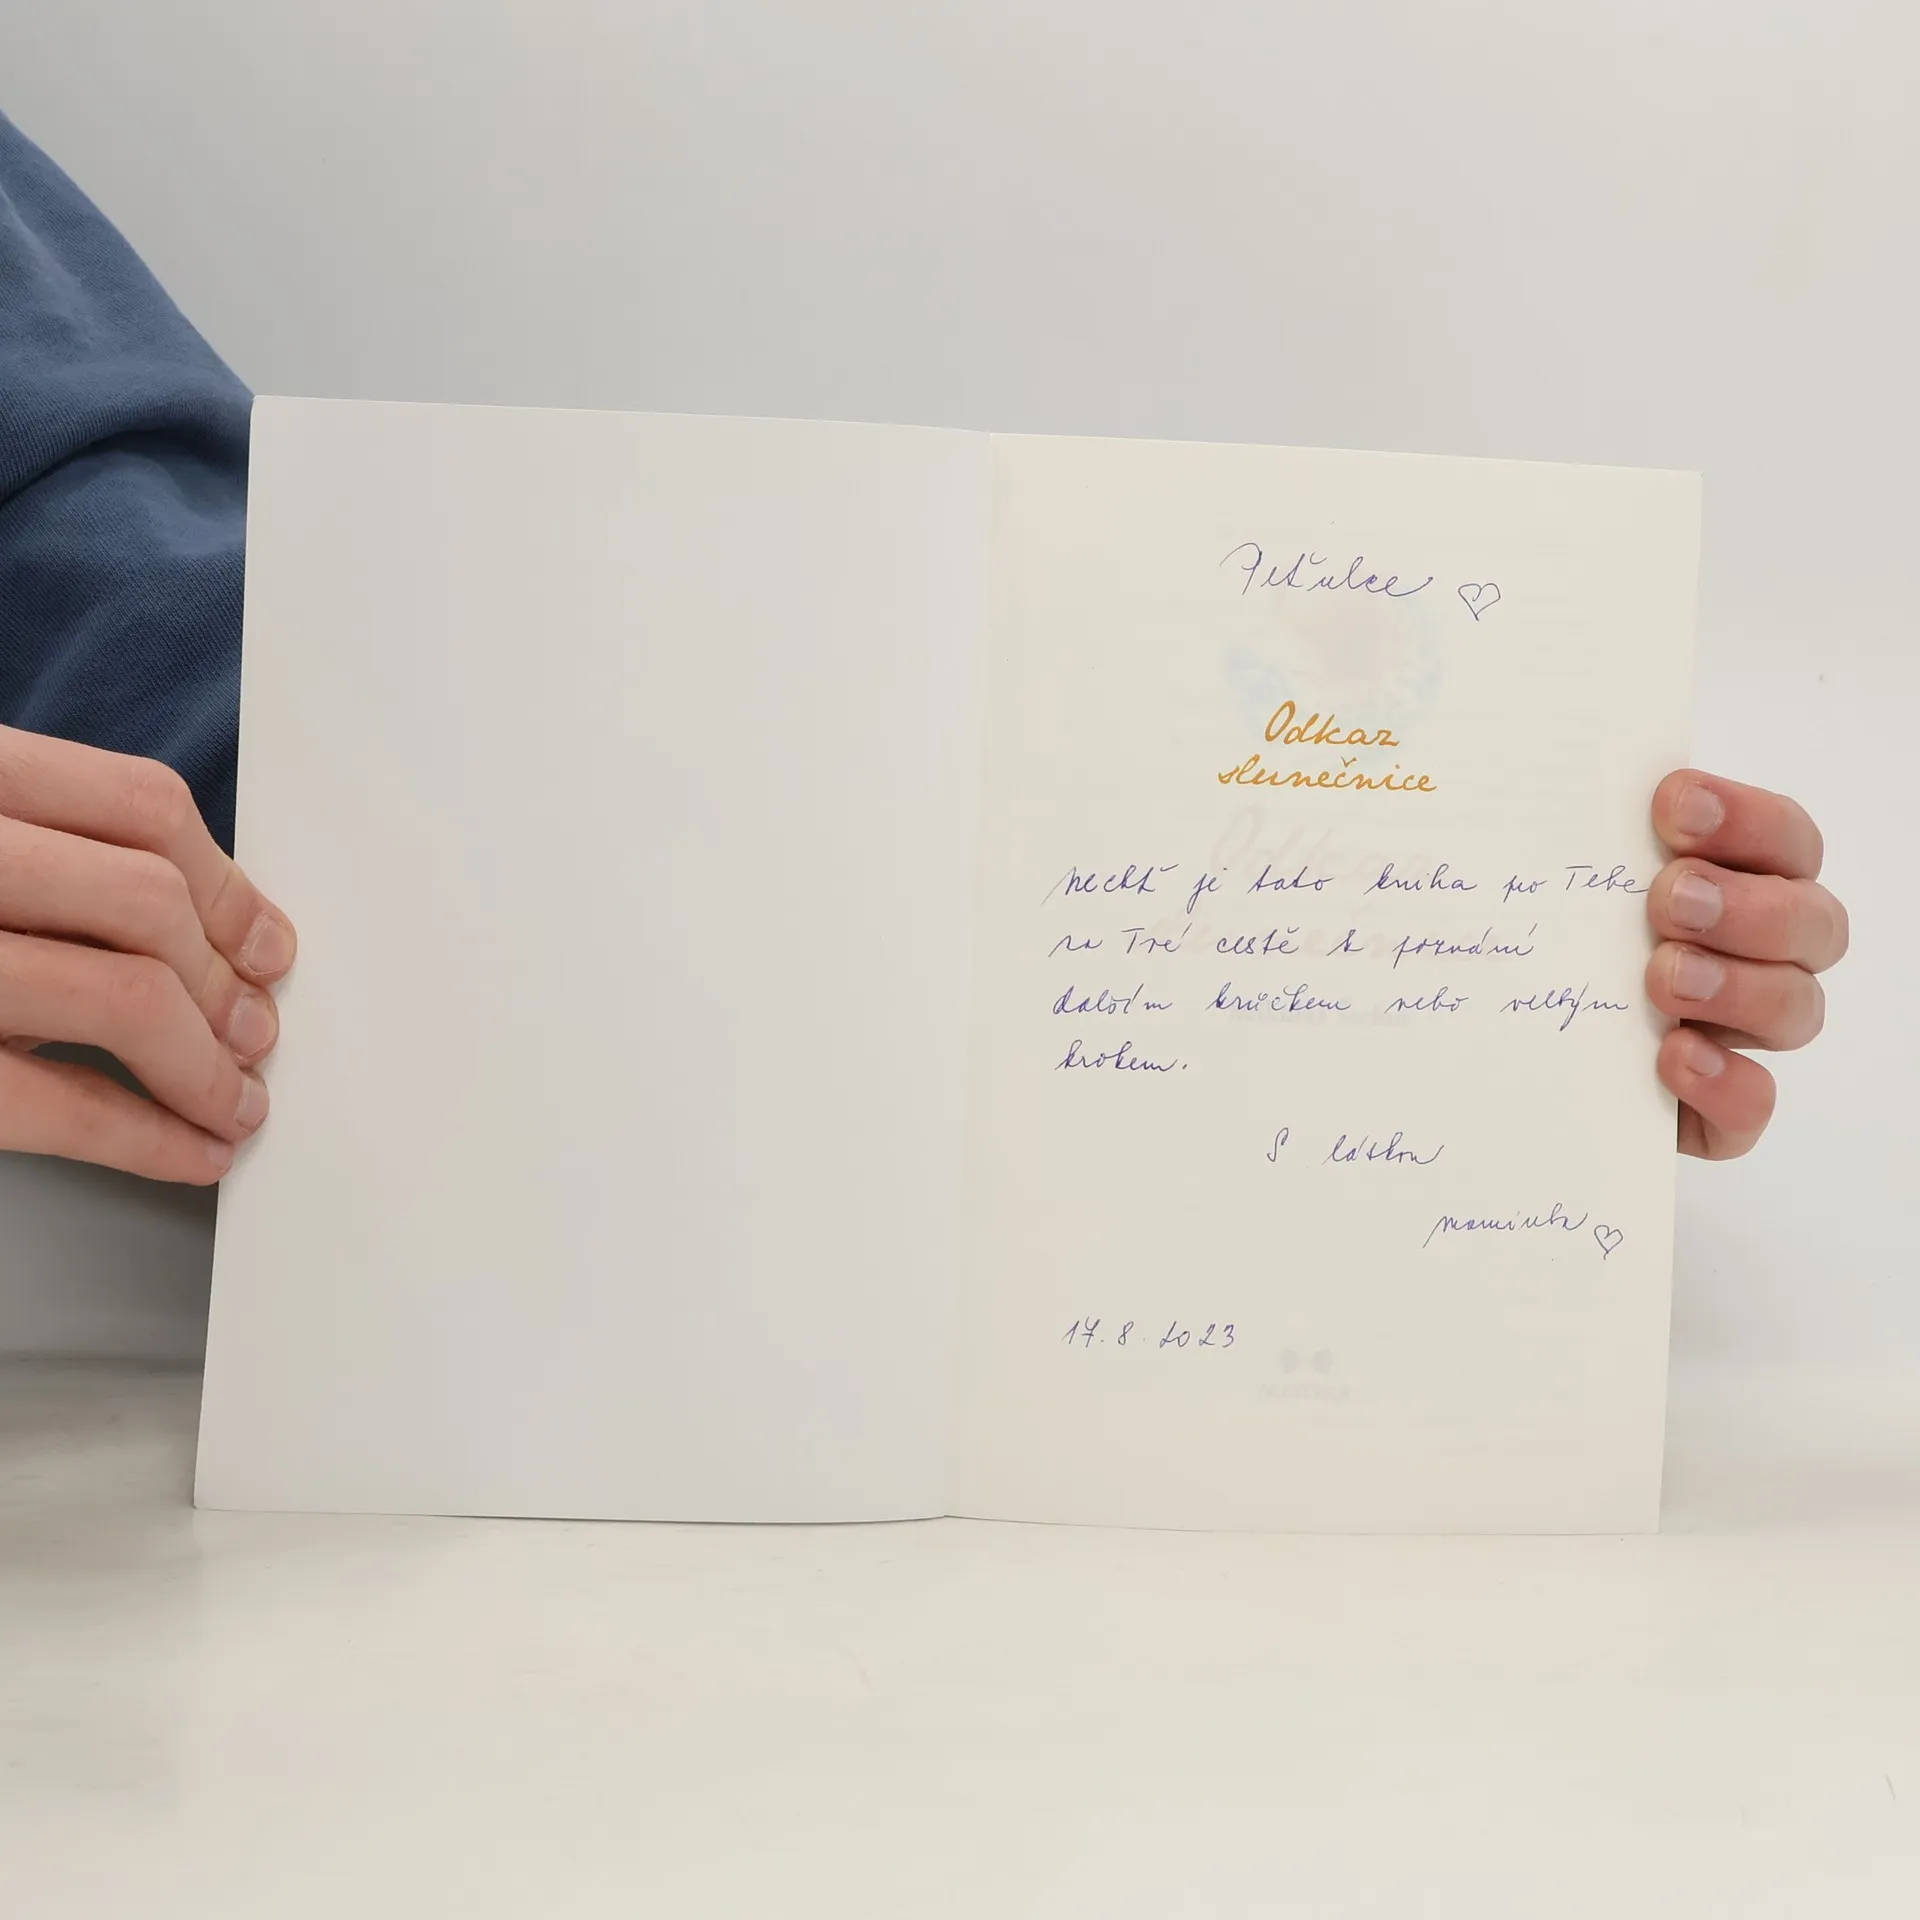 Peťulce
Odkaz
slunečnice
Nechť je tato kniha pro Tebe
na Tvé cestě k poznání
dalším krůčkem nebo velkým
krokem.
S láskou
maminka
17. 8. 2023